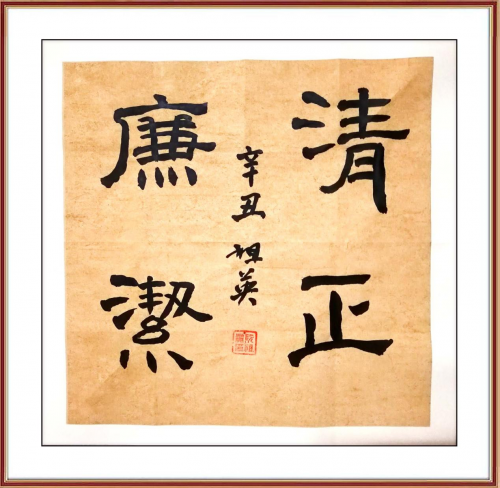 清正
廉潔
辛丑
英